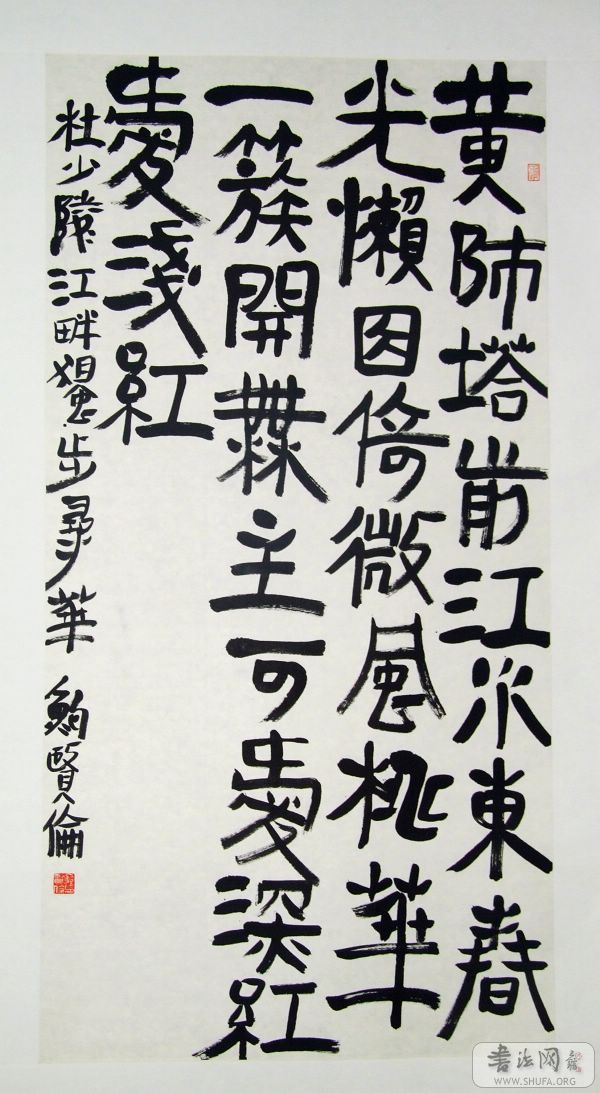 黄師塔前江水東春
光懶因倚微風桃華
一簇開無主可愛深紅
愛淺紅
杜少陵江畔獨步尋華 鮑賢倫
書法网
WWW.SHUFA.ORG